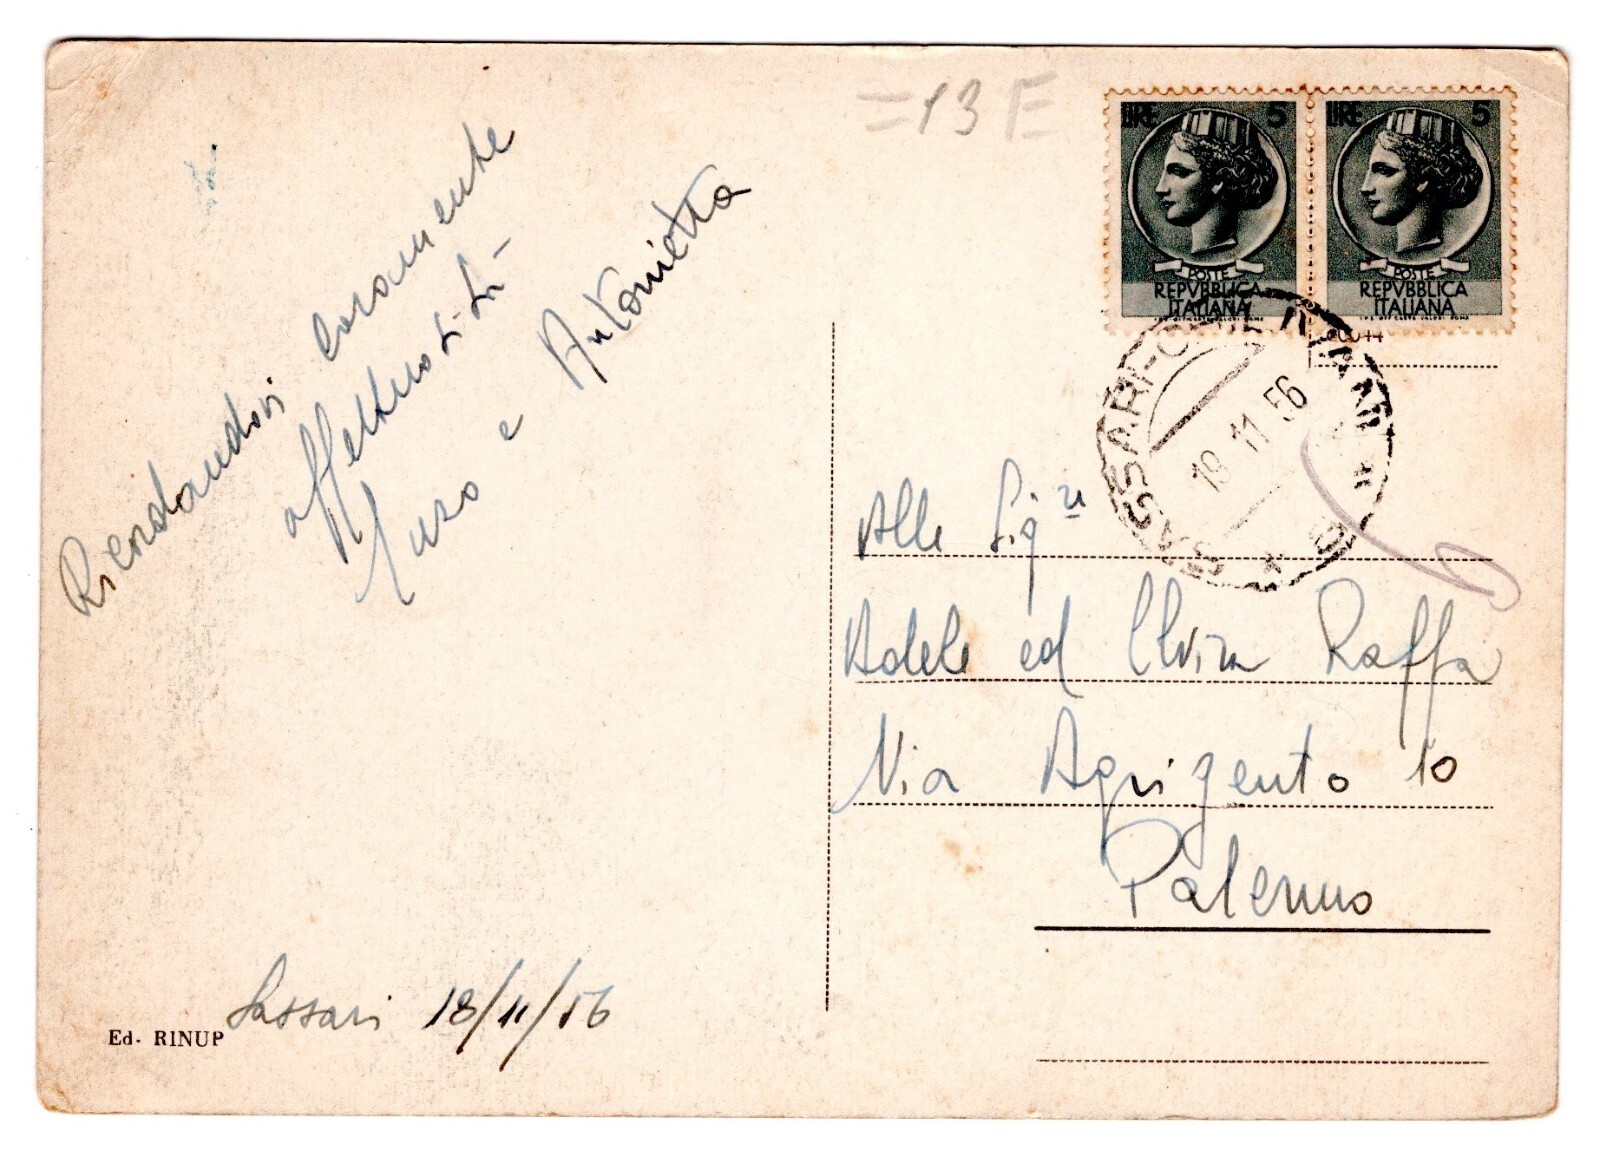 Ricordandovi caramente
affettuosità
e Antonietta
Sassari 18/11/56
Ed. RINUP
=13 E
LIRE 5
POSTE
REPVBBLICA
ITALIANA
LIRE 5
POSTE
REPVBBLICA
ITALIANA
SASSARI-
18 11 56
Alle Sig.re
Adele ed Elvira Raffa
Via Agrigento 10
Palermo